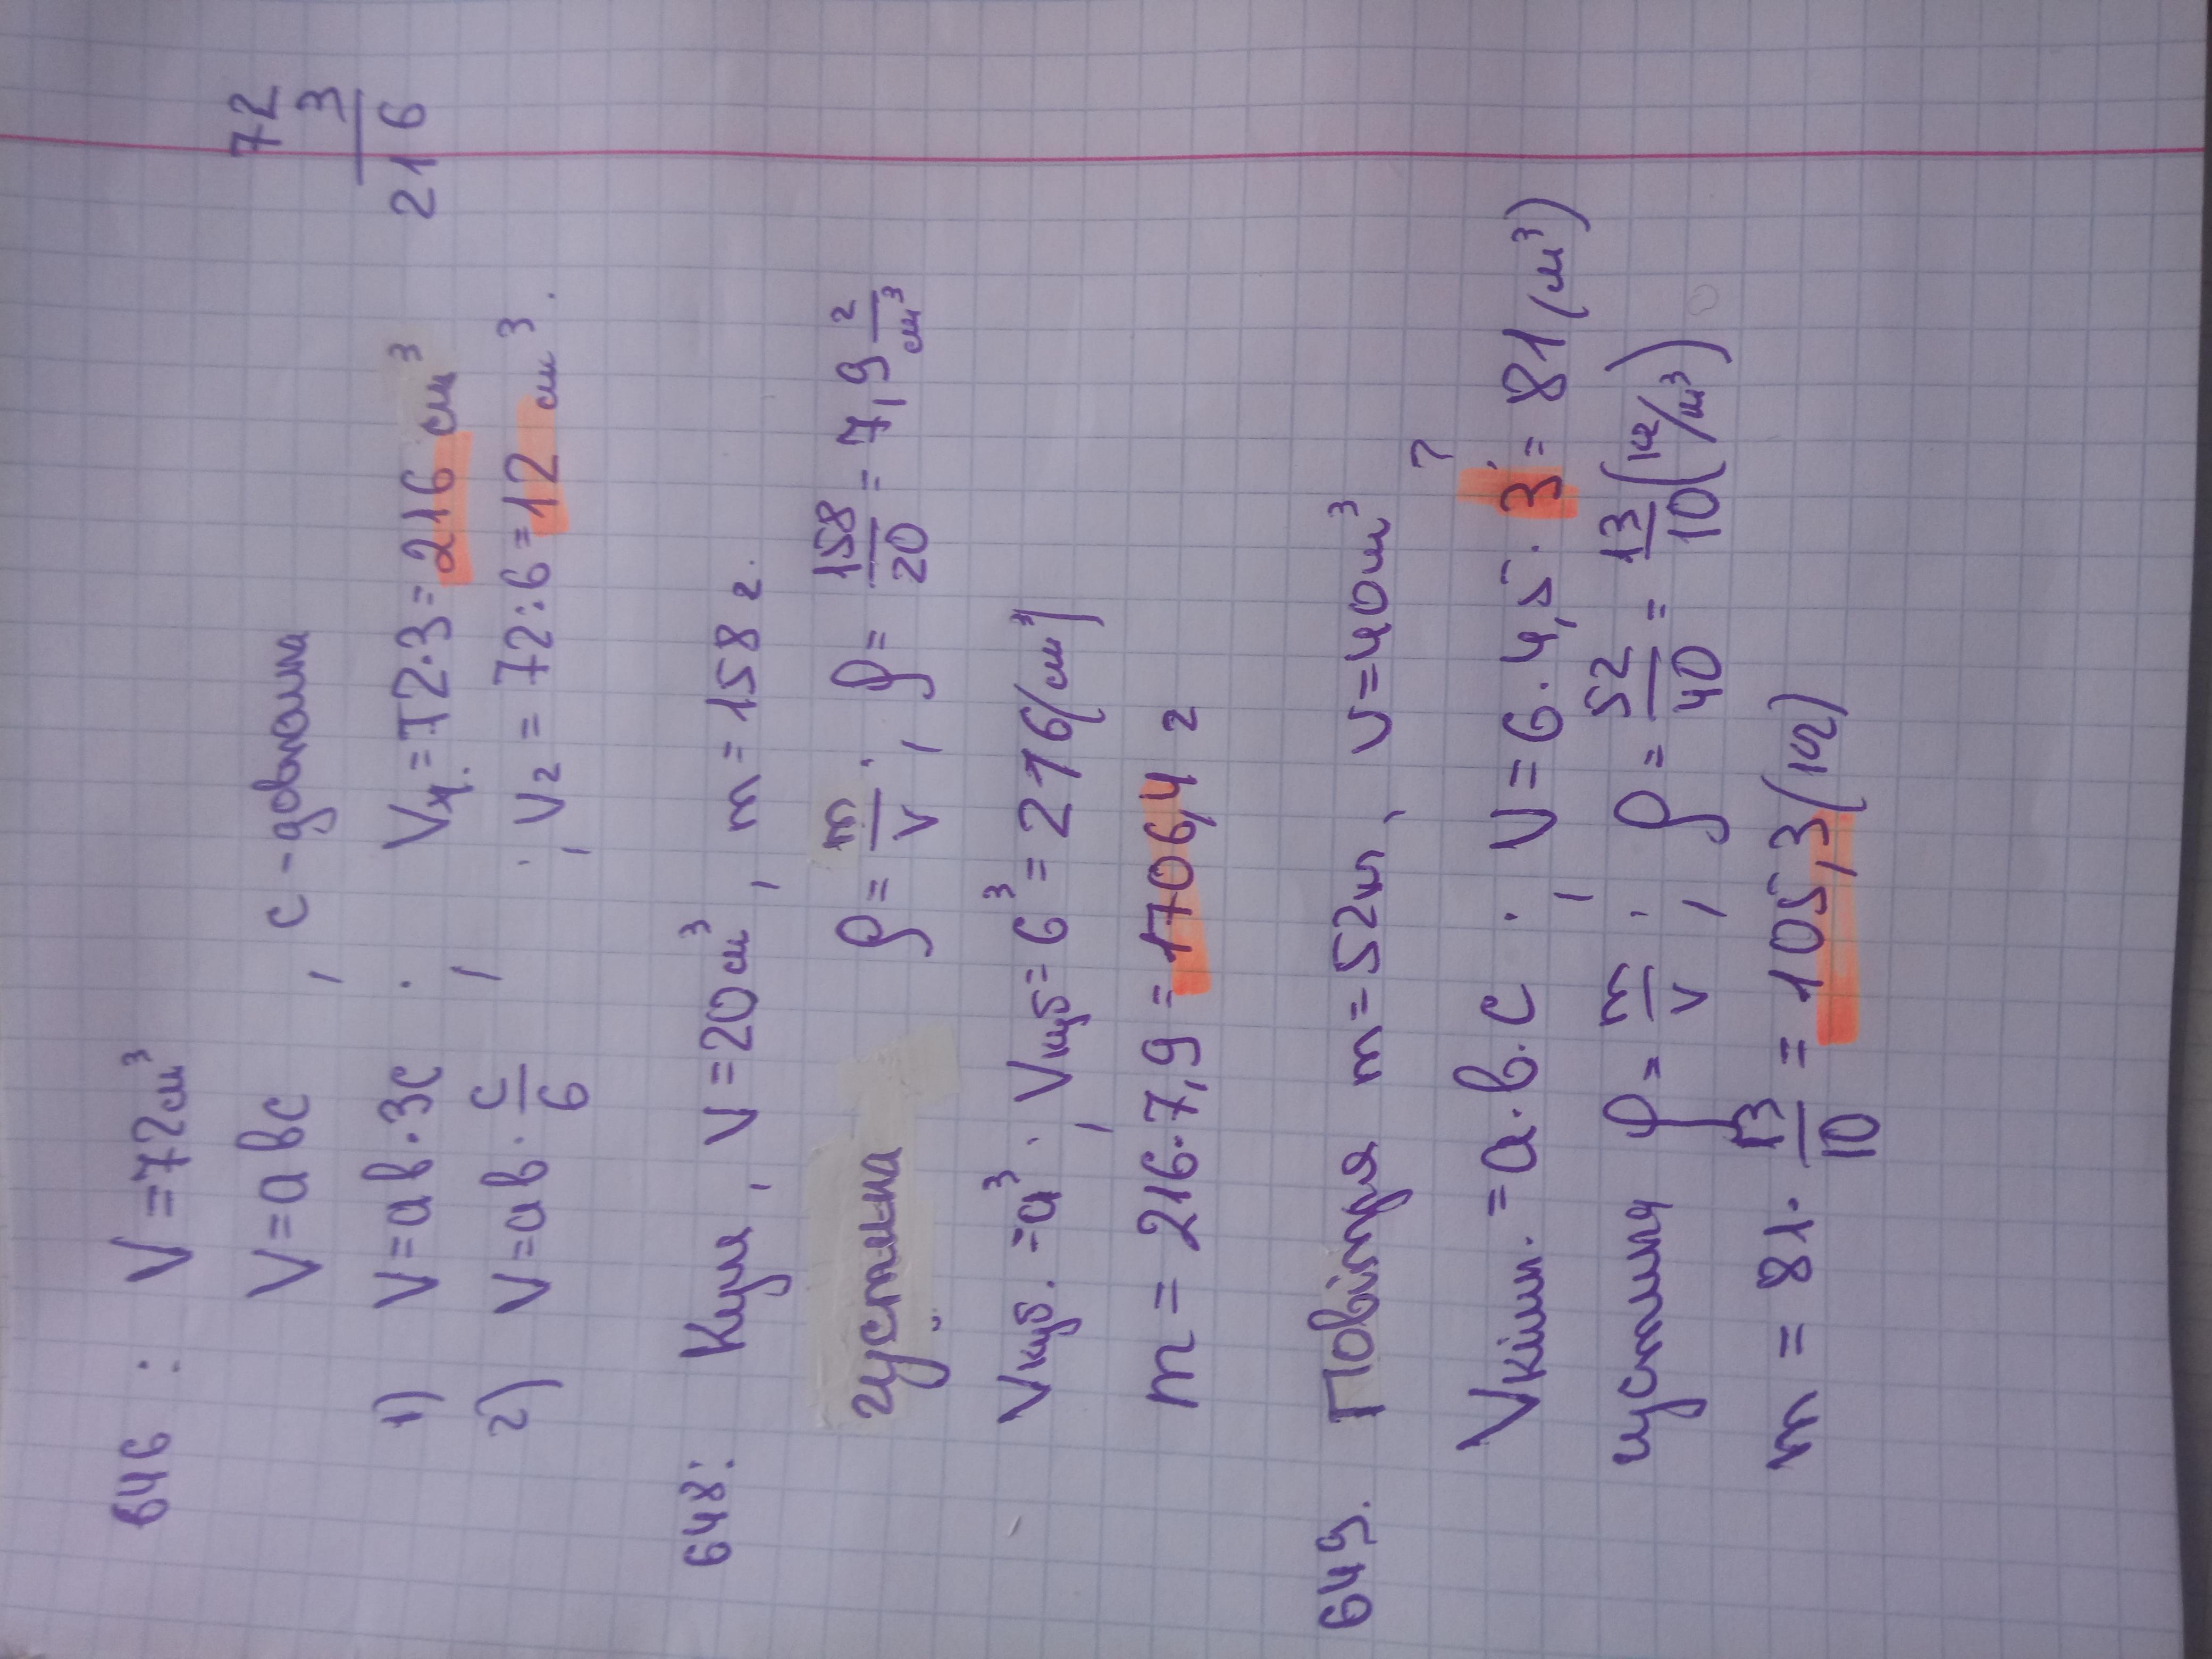 646 : V = 72 см³
V = a b c , c - довжина
72
3
216
1) V = a b · 3c ; V₁ = 72 · 3 = 216 см³
2) V = a b · c/6 ; V₂ = 72 : 6 = 12 см³.
648: Куля , V = 20 см³ , m = 158 г.
густина ρ = m/V ; ρ = 158/20 = 7,9 г/см³
Vкуб. = a³ ; Vкуб = 6³ = 216 (см³)
m = 216 · 7,9 = 1706,4 г
649. Повітря m = 52 кг , V = 40 м³
?
Vкімн. = a · b · c ; V = 6 · 4,5 · 3 = 81 (см³)
густина ρ = m/V ; ρ = 52/40 = 13/10 (кг/м³)
m = 81 · 13/10 = 105,3 (кг)